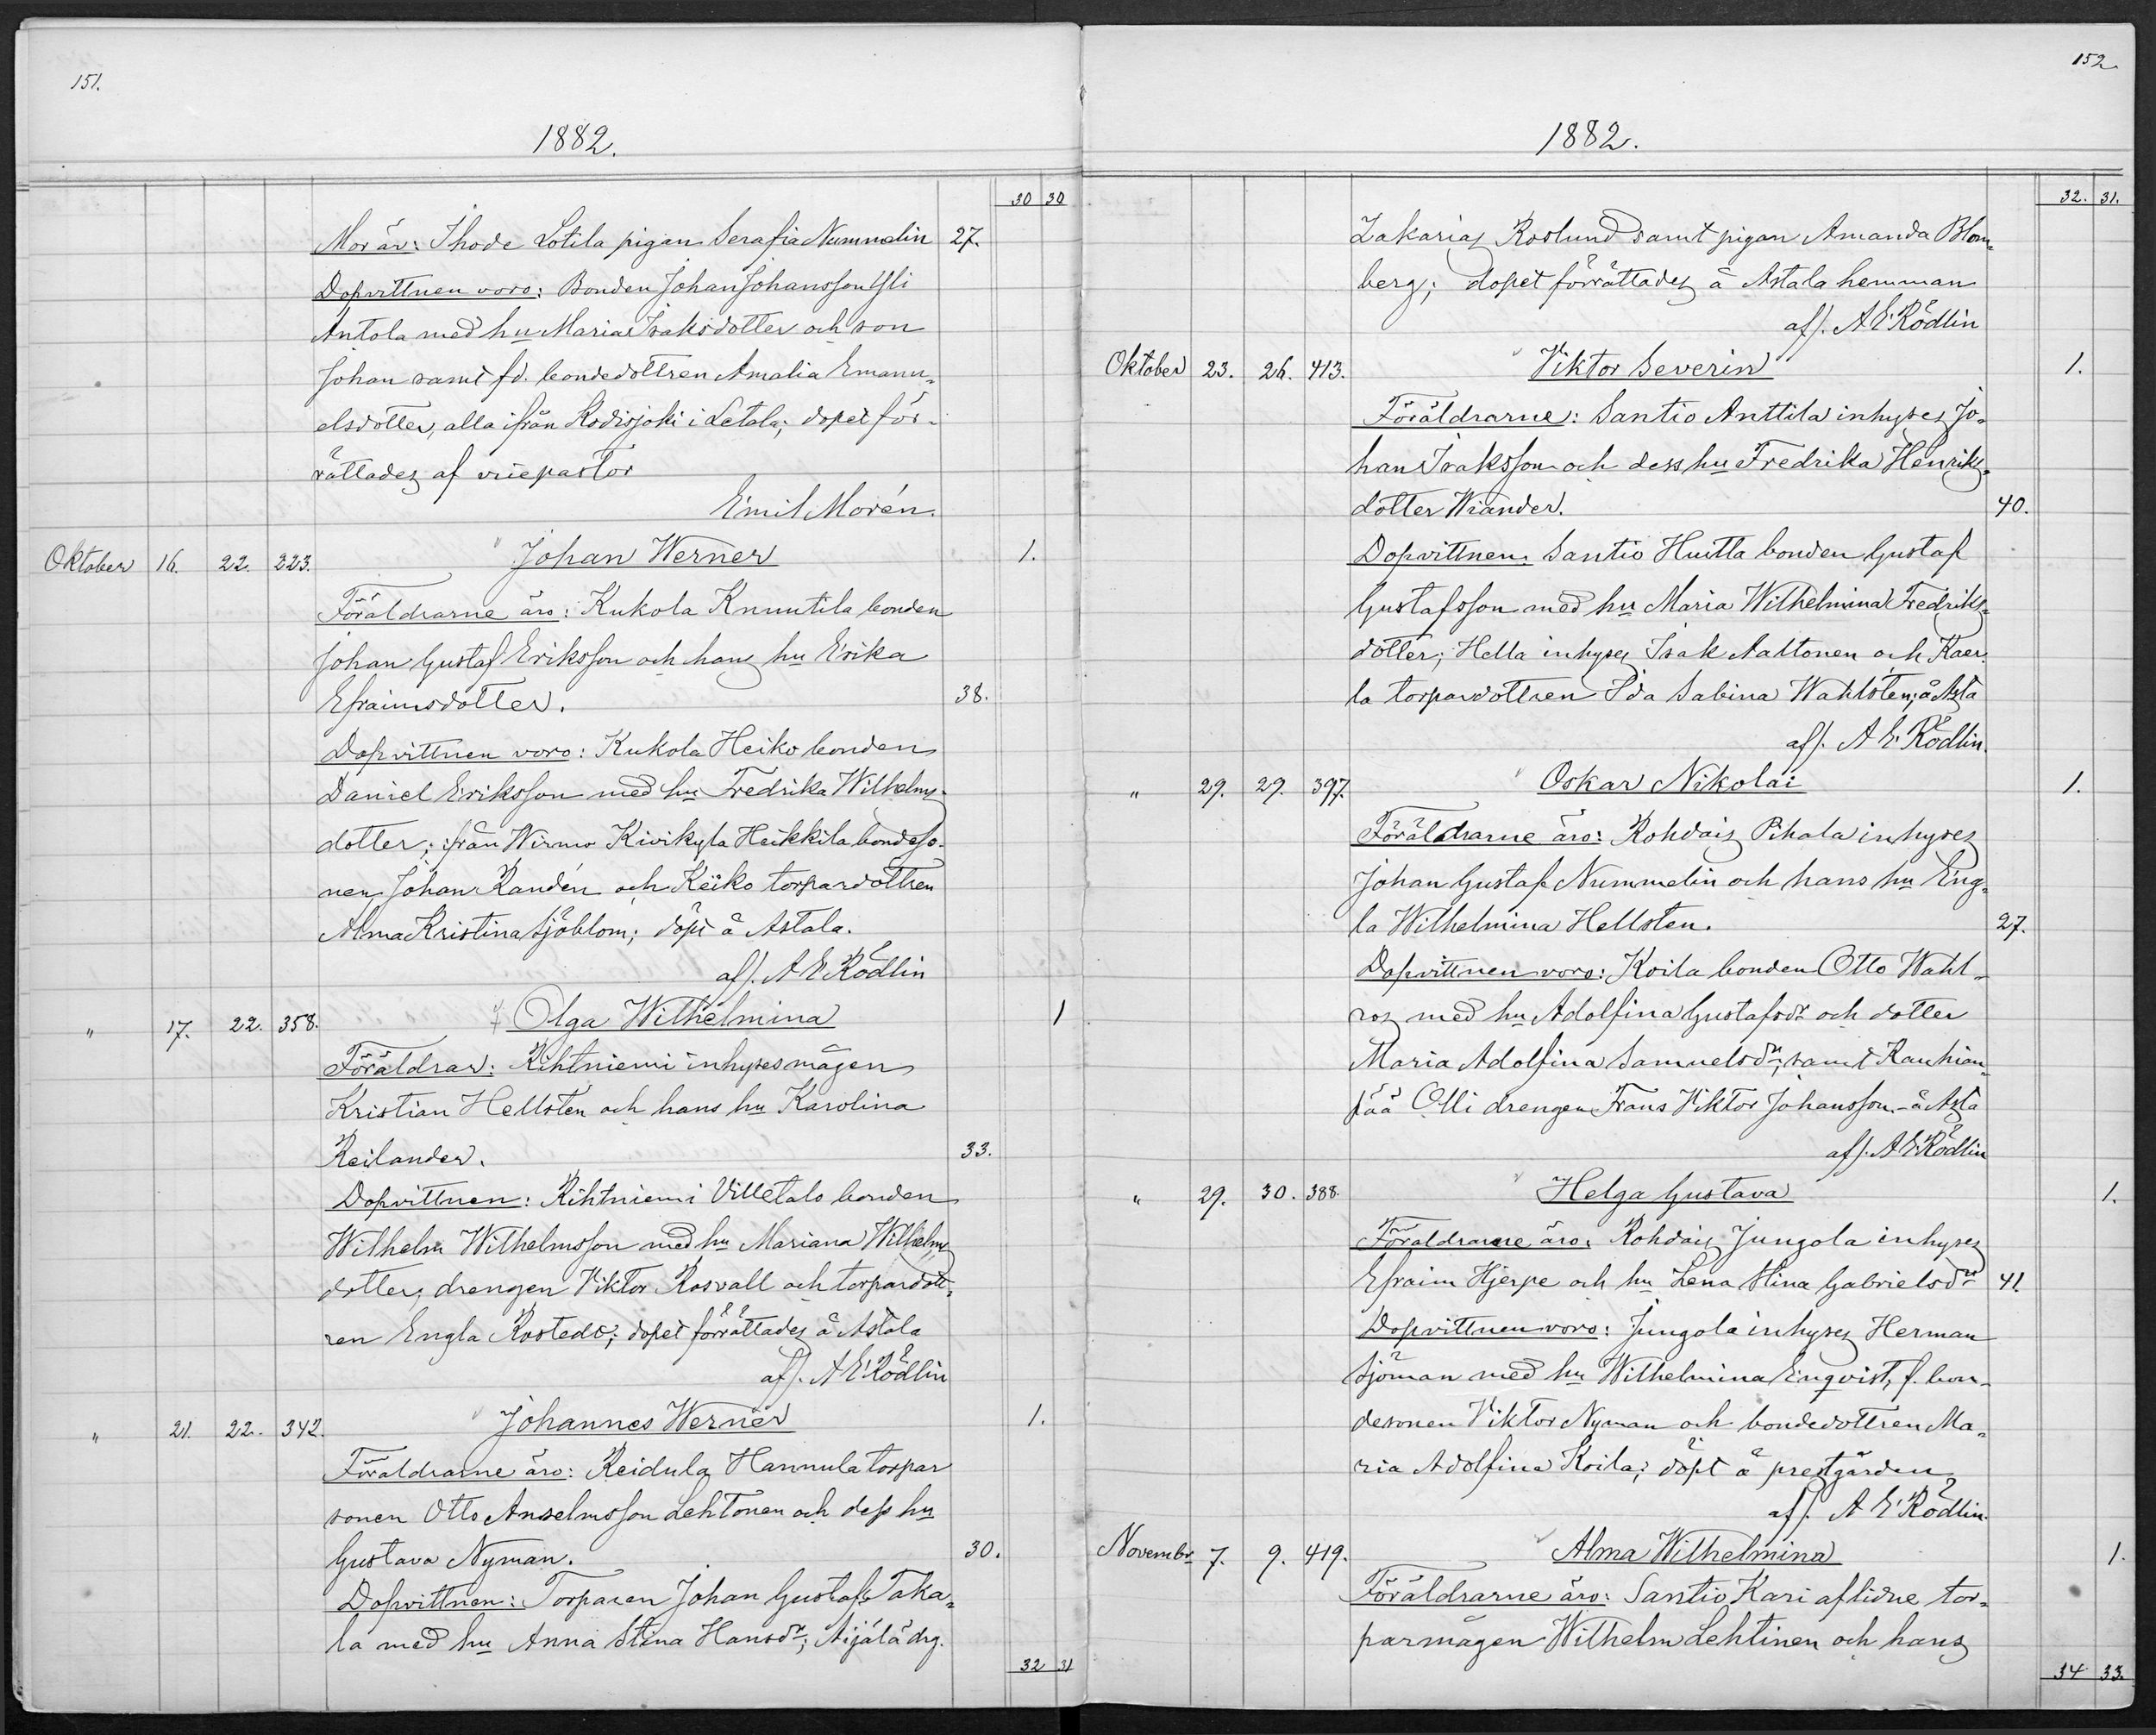 151.
1882.
30 30
Mor är: Ihode Lotila pigan Serafia Nummelin 27.
Dopvittnen voro: Bonden Johan Johansson Yli
Antola med hu Maria Isaksdotter och son
Johan samt fd. bondedottren Amalia Emanu-
elsdotter, alla ifrån Kodisjoki i Letala; dopet för-
rättades af vicepastor
Emil Morén.
Oktober 16. 22. 323. Johan Werner 1.
Föräldrarne äro: Kukola Knuutila bonden
Johan Gustaf Eriksson och hans hu Erika
Efraimsdotter. 38.
Dopvittnen voro: Kukola Heiko bonden
Daniel Eriksson med hu Fredrika Wilhelms-
dotter; från Wirmo Kivikyla Heikkila bondeso-
nen Johan Randén och Keiko torpardottren
Alma Kristina Sjöblom; döpt å Astala.
af/. A E Rödlin
" 17. 22. 358. Olga Wilhelmina 1
Föräldrar: Rihtniemi inhysesmågen
Kristian Hellsten och hans hu Karolina
Reilander. 33.
Dopvittnen: Rihtniemi Villetalo bonden
Wilhelm Wilhelmsson med hu Mariana Wilhelms
dotter, drengen Viktor Rosvall och torpardott-
ren Engla Rostedt; dopet förrättades å Astala
af/. A E Rödlin
" 21. 22. 342. Johannes Werner 1.
Föräldrarne äro: Reidula Hannula torpar
sonen Otto Anselmsson Lehtonen och dess hu
Gustava Nyman. 30.
Dopvittnen: Torparen Johan Gustafs Taka-
la med hu Anna Stina Hansdr; Äijälä drg.
32 31
152.
1882.
32. 31.
Zakarias Roslund samt pigan Amanda Blom-
berg; dopet förrättades å Astala hemman
af/. A E Rödlin
Oktober 23. 26. 413. Viktor Severin 1.
Föräldrarne: Santio Anttila inhyses Jo-
han Isaksson och dess hu Fredrika Henriks-
dotter Wiander. 40.
Dopvittnen: Santio Huitta bonden Gustaf
Gustafsson med hu Maria Wilhelmina Fredriks-
dotter; Hella inhyses Isak Aaltonen och Kaer-
la torpardottren Ida Sabina Wahlsten; å Asta
af/. A E Rödlin.
" 29. 29. 397. Oskar Nikolai 1.
Föräldrarne äro: Rohdais Pihala inhyses
Johan Gustaf Nummelin och hans hu Eng-
la Wilhelmina Hellsten. 27.
Dopvittnen voro: Koila bonden Otto Wahl-
ros med hu Adolfina Gustafsdr och dotter
Maria Adolfina Samuelsdr, samt Rauhian-
pää Olli drengen Frans Viktor Johansson - å Asta
af/. A E Rödlin
" 29. 30. 388. Helga Gustava 1.
Föräldrarne äro: Rohdais Jungola inhyses
Efraim Hjerpe och hu Lena Stina Gabrielsdr 41.
Dopvittnen voro: Jungola inhyses Herman
Sjöman med hu Wilhelmina Enqvist, f. bon-
desonen Viktor Nyman och bondedottren Ma-
ria Adolfina Koila; döpt å prestgården
af/. A E Rödlin.
Novembr 7. 9. 419. Alma Wilhelmina 1.
Föräldrarne äro: Santio Kari aflidne tor-
parmågen Wilhelm Lehtinen och hans
34 33.